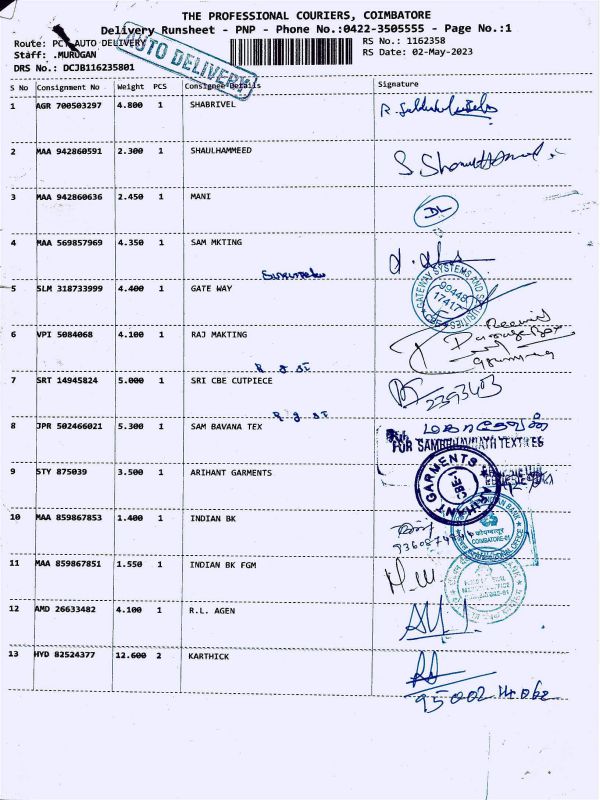 THE PROFESSIONAL COURIERS, COIMBATORE
Delivery Runsheet - PNP - Phone No.:0422-3505555 - Page No.:1
Route: PCT AUTO DELIVERY
RS No.: 1162358
Staff: .MURUGAN
RS Date: 02-May-2023
DRS No.: DCJB116235801
AUTO DELIVERY
S No Consignment No Weight PCS Consignee Details Signature
1 AGR 700503297 4.800 1 SHABRIVEL
2 MAA 942860591 2.300 1 SHAULHAMMEED
3 MAA 942860636 2.450 1 MANI
4 MAA 569857969 4.350 1 SAM MKTING
5 SLM 318733999 4.400 1 GATE WAY
GATEWAY SYSTEMS AND SECURITIES
99448
17417
6 VPI 5084068 4.100 1 RAJ MAKTING
7 SRT 14945824 5.000 1 SRI CBE CUTPIECE
8 JPR 502466021 5.300 1 SAM BAVANA TEX
9 STY 875039 3.500 1 ARIHANT GARMENTS
ARIHANT GARMENTS
CBE-1
10 MAA 859867853 1.400 1 INDIAN BK
COIMBATORE-01
11 MAA 859867851 1.550 1 INDIAN BK FGM
12 AMD 26633482 4.100 1 R.L. AGEN
13 HYD 82524377 12.600 2 KARTHICK